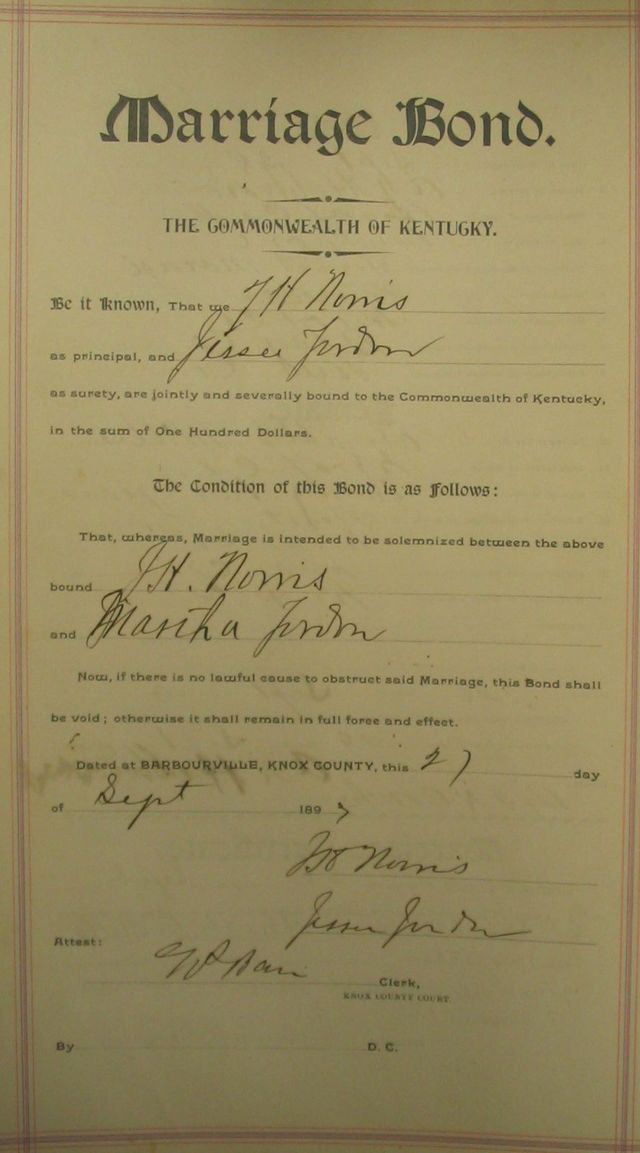 Marriage Bond.
THE COMMONWEALTH OF KENTUCKY.
Be it Known, That we J H Norris
as principal, and Jessee Jordon
as surety, are jointly and severally bound to the Commonwealth of Kentucky,
in the sum of One Hundred Dollars.
The Condition of this Bond is as Follows:
That, whereas, Marriage is intended to be solemnized between the above
bound J H. Norris
and Martha Jordon
Now, if there is no lawful cause to obstruct said Marriage, this Bond shall
be void; otherwise it shall remain in full force and effect.
Dated at BARBOURVILLE, KNOX COUNTY, this 27 day
of Sept 1897
J H Norris
Jessee Jordon
Attest:
Clerk,
KNOX COUNTY COURT.
By D. C.